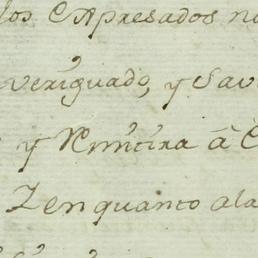 los Apresados no
veriguado, y Sav
y Remitira â
Y en quanto ala